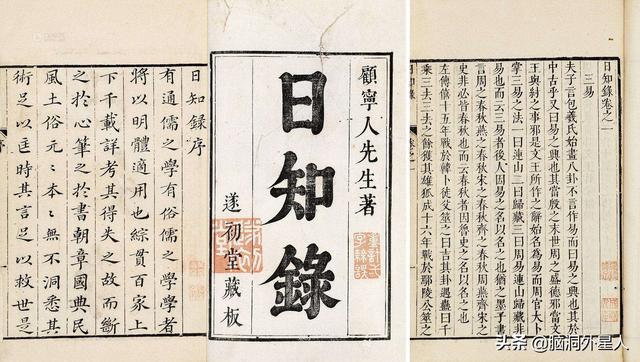 日知録序
有通儒之學有俗儒之學學者
將以明體適用也綜貫百家上
下千載詳考其得失之故而斷
之於心筆之於書朝章國典民
風土俗元〻本〻無不洞悉其
術足以匡時其言足以救世是
顧寧人先生著
日知錄
遂初堂藏板
日知錄卷之一
三易
夫子言包羲氏始畫八卦不言作易而曰易之興也其於
中古乎又曰易之興也其當殷之末世周之盛德邪當文
王與紂之事邪是文王所作之辭始名為易而周官大卜
掌三易之法一曰連山二曰歸藏三曰周易連山歸藏非
易也而云三易者後人因易之名以名之也猶之墨子書
言周之春秋燕之春秋宋之春秋齊之春秋周燕齊宋之
史非必皆春秋也而云春秋者因魯史之名以名之也
左傳僖十五年戰於韓卜徒父筮之曰吉其卦遇蠱曰千
乘三去三去之餘獲其雄狐成十六年戰於鄢陵公筮之
头条 @脑洞外星人